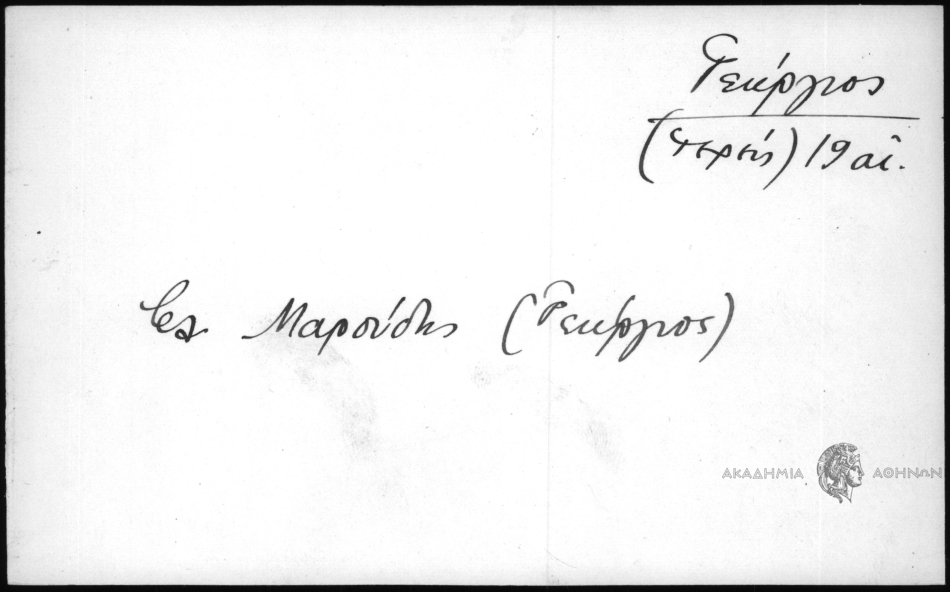 Γεώργιος
(ἱερεύς) 19 αἰ.
Μαρούδης (Γεώργιος)
ΑΚΑΔΗΜΙΑ ΑΘΗΝΩΝ